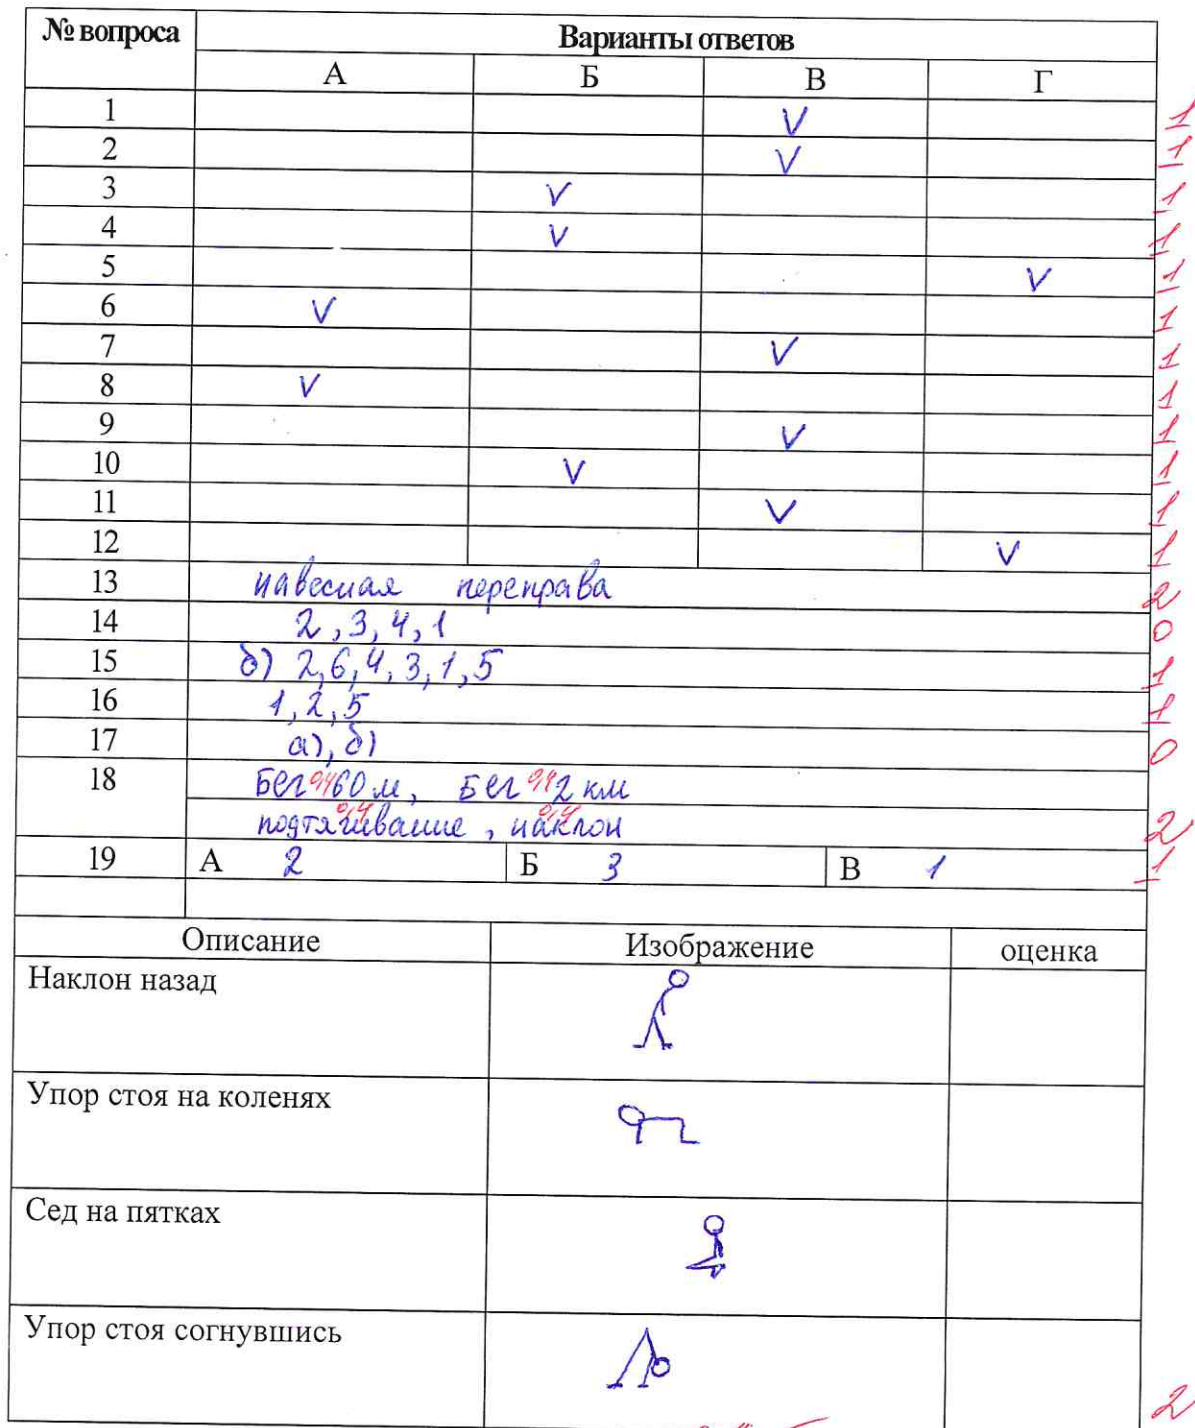 № вопроса Варианты ответов
А Б В Г
1 V 1
2 V 1
3 V 1
4 V 1
5 V 1
6 V 1
7 V 1
8 V 1
9 V 1
10 V 1
11 V 1
12 V 1
13 навесная переправа 2
14 2, 3, 4, 1 0
15 б) 2, 6, 4, 3, 1, 5 1
16 1, 2, 5 1
17 а), б) 0
18 Бег 60 м, Бег 2 км
подтягивание, наклон 2
19 А 2 Б 3 В 1 1
Описание Изображение оценка
Наклон назад
Упор стоя на коленях
Сед на пятках
Упор стоя согнувшись
2